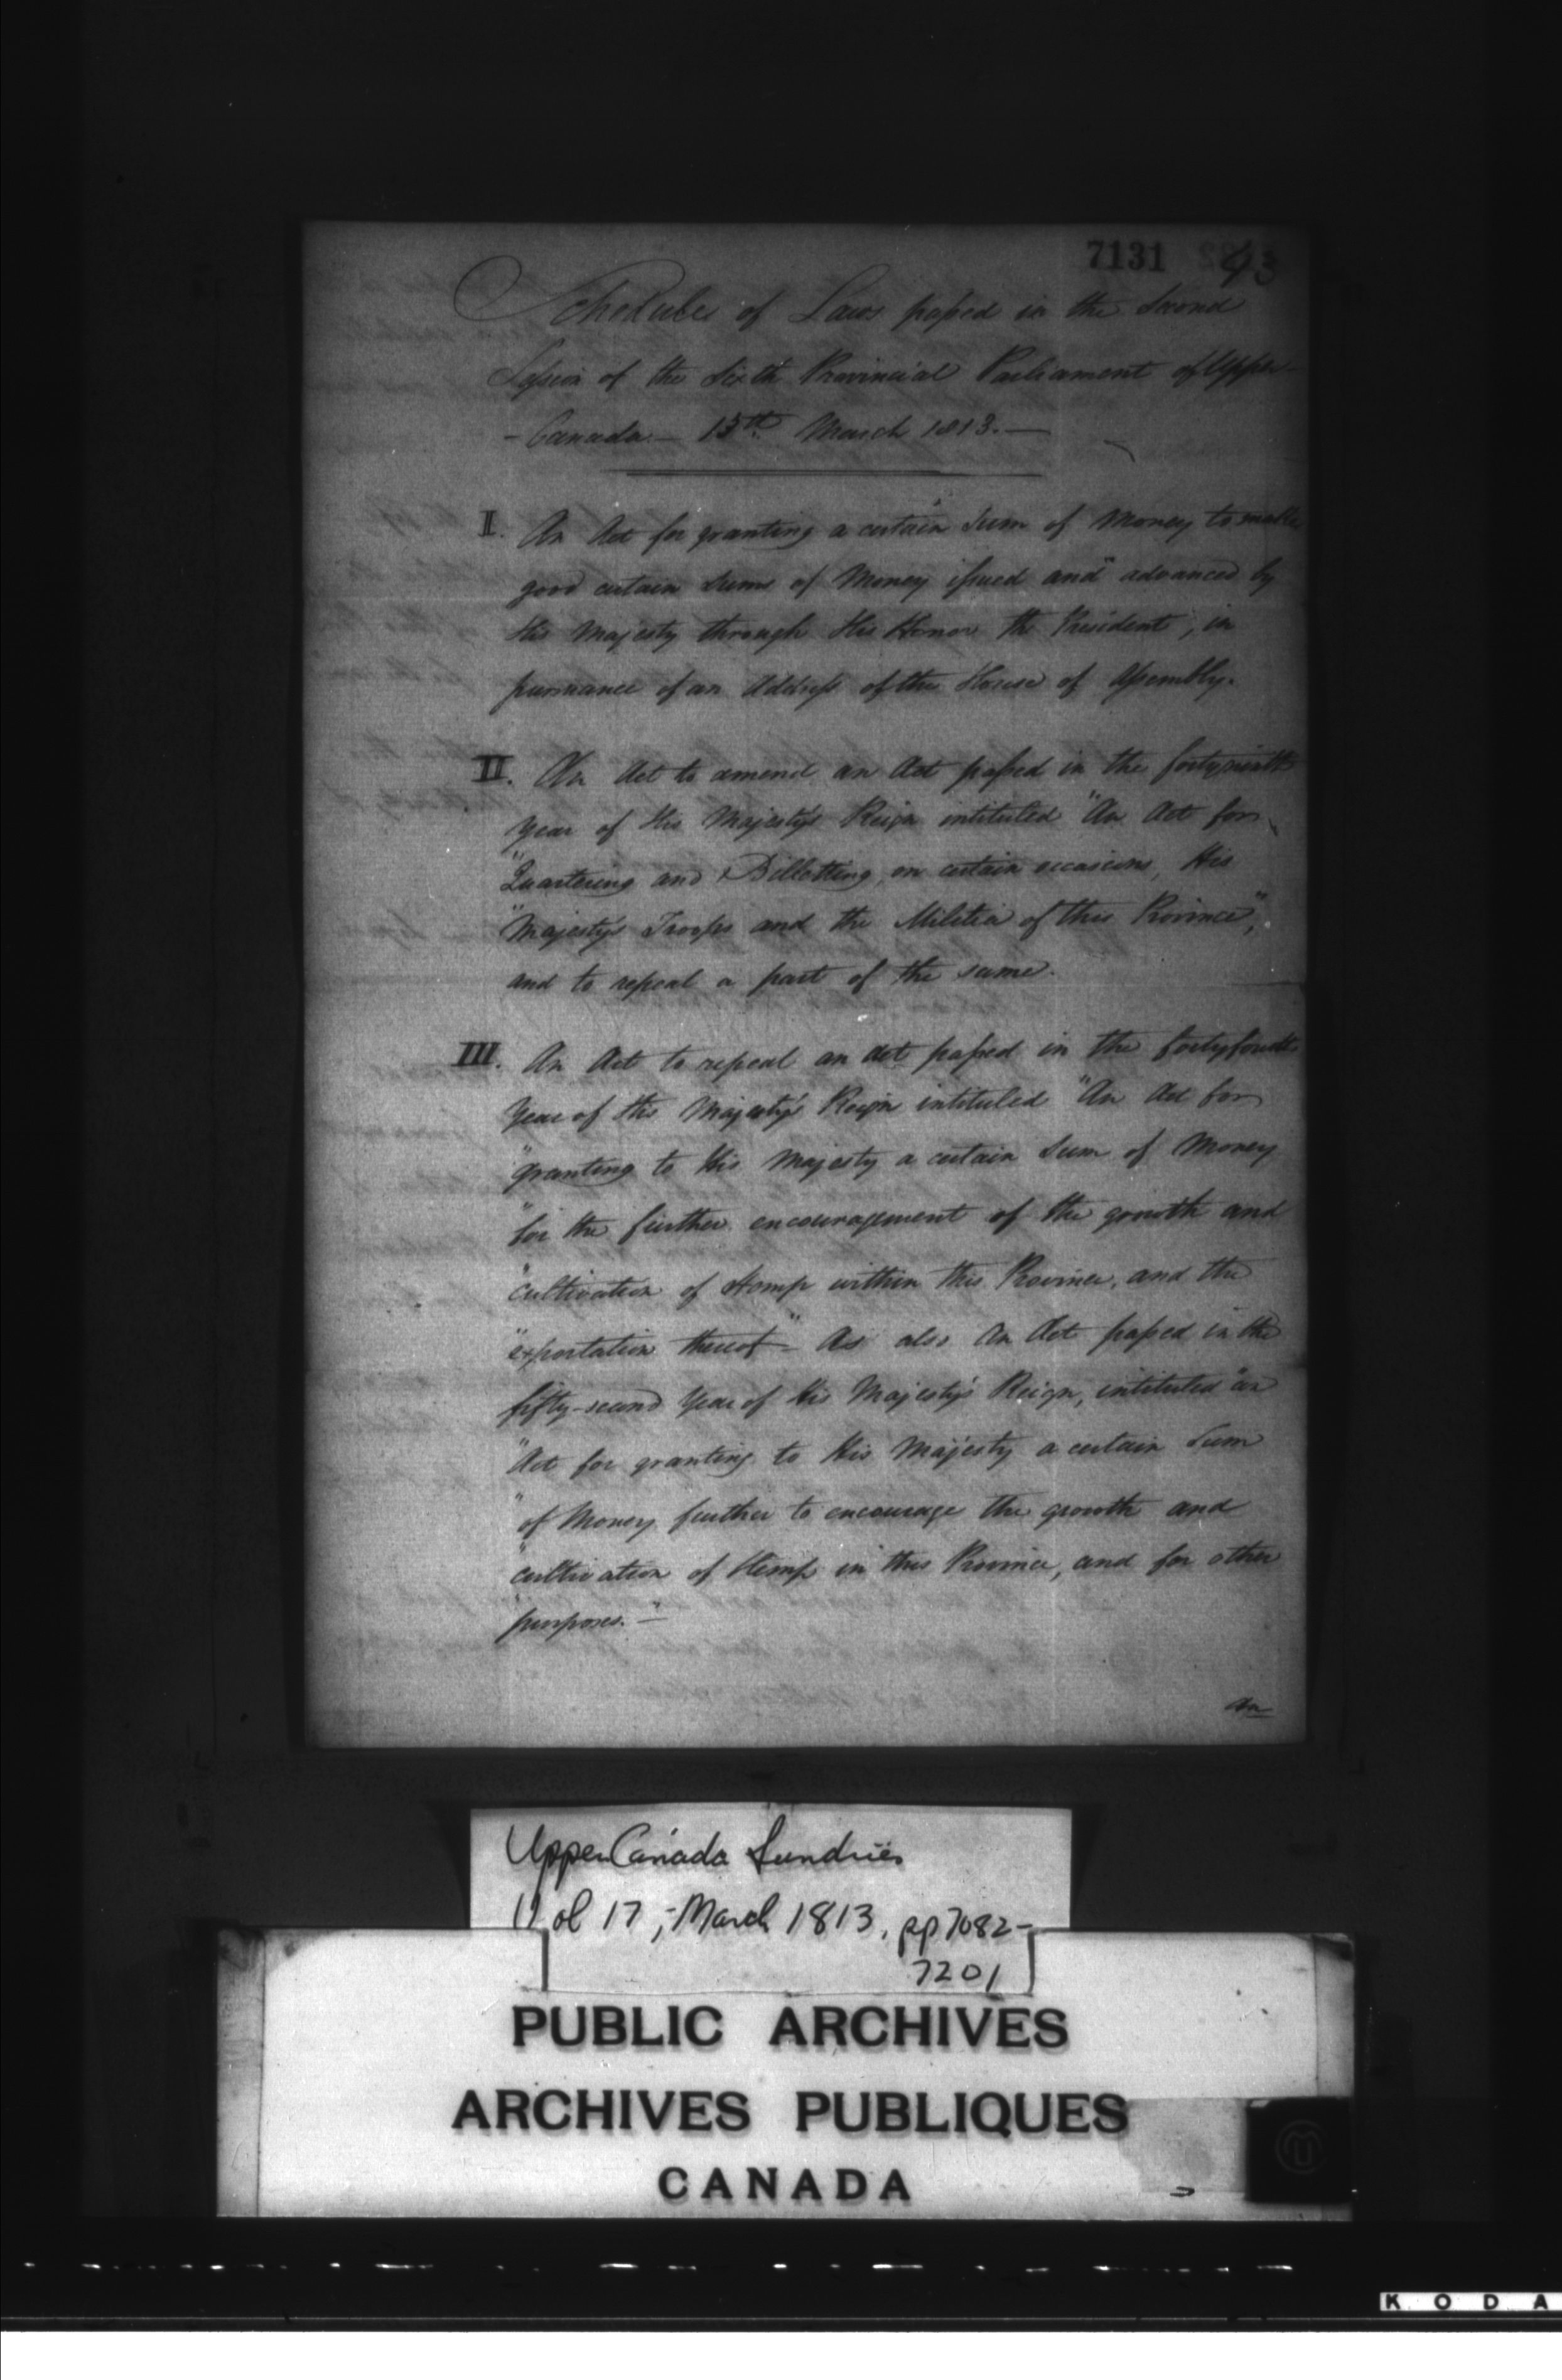 7131 93
Schedule of Laws passed in the Second
Session of the Sixth Provincial Parliament of Upper
- Canada - 13th March 1813. -
I. An Act for granting a certain Sum of Money to make
good certain Sums of Money issued and advanced by
His Majesty through His Honor the President, in
pursuance of an Address of the House of Assembly.
II. An Act to amend an Act passed in the fortyninth
Year of His Majesty's Reign intituled "An Act for
"Quartering and Billetting, on certain occasions, His
"Majesty's Troops and the Militia of this Province",
and to repeal a part of the same.
III. An Act to repeal an Act passed in the fortyfourth
Year of His Majesty's Reign intituled "An Act for
"granting to His Majesty a certain Sum of Money
"for the further encouragement of the growth and
"cultivation of Hemp within this Province, and the
"exportation thereof" - As also An Act passed in the
fifty-second Year of His Majesty's Reign, intituled "an
"Act for granting to His Majesty a certain Sum
"of Money further to encourage the growth and
"cultivation of Hemp in this Province, and for other
"purposes." -
An
Upper Canada Sundries
Vol 17, - March 1813, pp 7082-
7201
PUBLIC ARCHIVES
ARCHIVES PUBLIQUES
CANADA
KODA